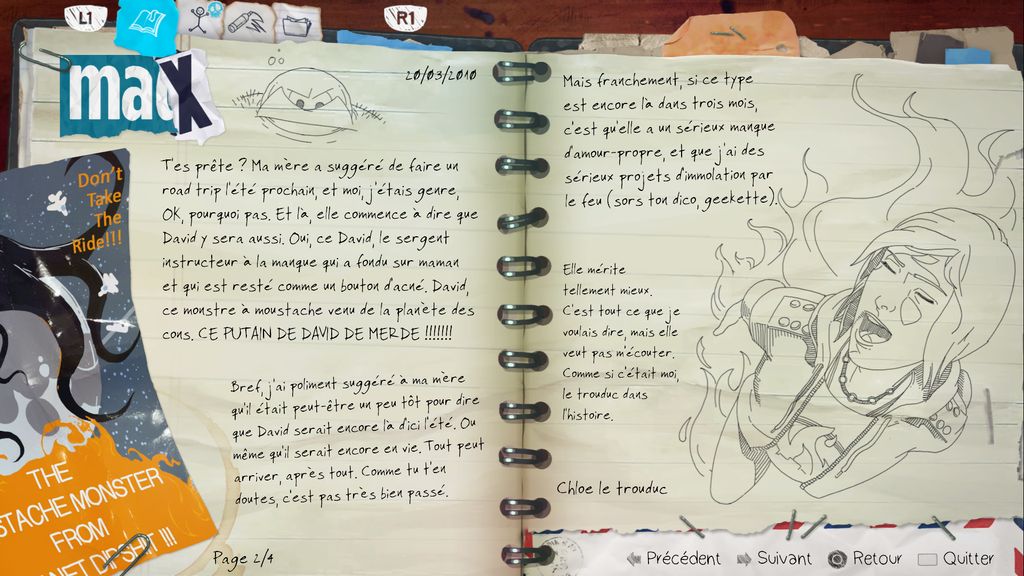 L1
R1
max
20/03/2010
T'es prête ? Ma mère a suggéré de faire un
road trip l'été prochain, et moi, j'étais genre,
OK, pourquoi pas. Et là, elle commence à dire que
David y sera aussi. Oui, ce David, le sergent
instructeur à la manque qui a fondu sur maman
et qui est resté comme un bouton d'acné. David,
ce monstre à moustache venu de la planète des
cons. CE PUTAIN DE DAVID DE MERDE !!!!!!!
Bref, j'ai poliment suggéré à ma mère
qu'il était peut-être un peu tôt pour dire
que David serait encore là d'ici l'été. Ou
même qu'il serait encore en vie. Tout peut
arriver, après tout. Comme tu t'en
doutes, c'est pas très bien passé.
Page 2/4
Don't
Take
The
Ride!!!
THE
STACHE MONSTER
FROM
NET DIPSHIT !!!
Mais franchement, si ce type
est encore là dans trois mois,
c'est qu'elle a un sérieux manque
d'amour-propre, et que j'ai des
sérieux projets d'immolation par
le feu (sors ton dico, geekette).
Elle mérite
tellement mieux.
C'est tout ce que je
voulais dire, mais elle
veut pas m'écouter.
Comme si c'était moi,
le trouduc dans
l'histoire.
Chloe le trouduc
Précédent
Suivant
Retour
Quitter